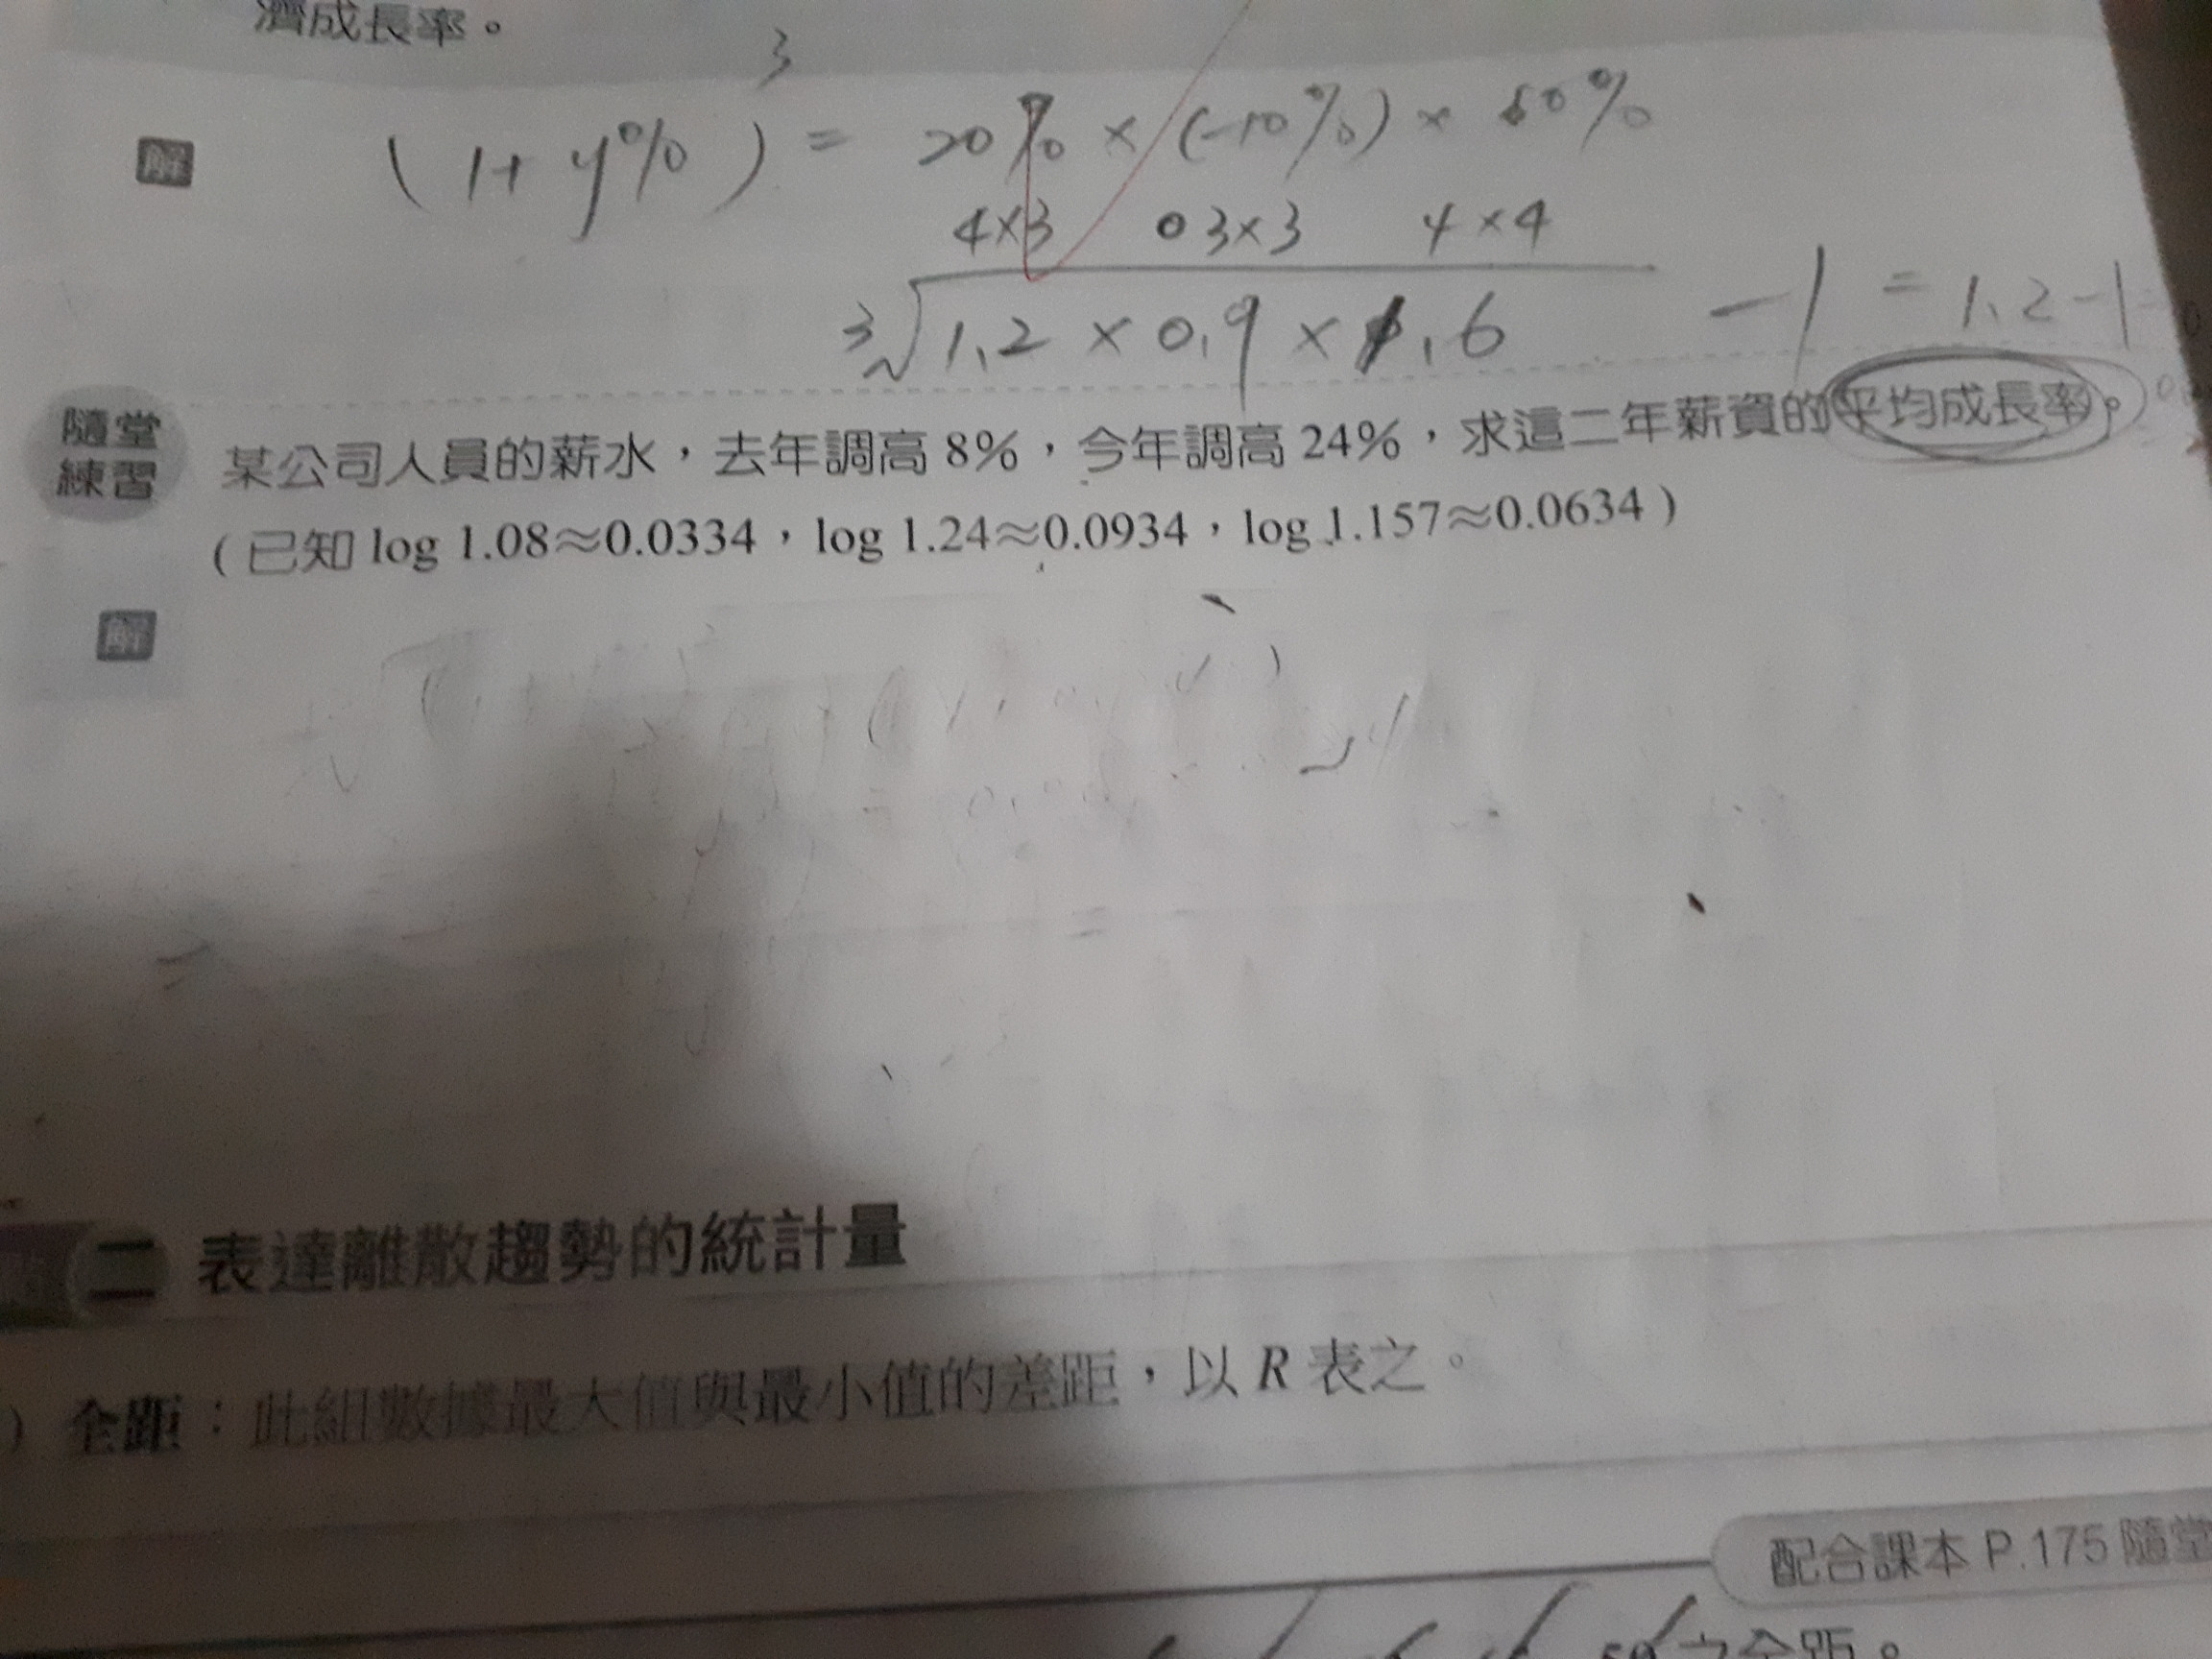 濟成長率。
解 (1+y%)³ = 20% × (-10%) × 60%
4×3 03×3 4×4
³√1.2 × 0.9 × 1.6 -1 = 1.2-1
隨堂練習
某公司人員的薪水，去年調高 8%，今年調高 24%，求這二年薪資的平均成長率。
(已知 log 1.08≈0.0334，log 1.24≈0.0934，log 1.157≈0.0634)
解
二 表達離散趨勢的統計量
) 全距：此組數據最大值與最小值的差距，以 R 表之。
配合課本 P.175 隨堂
50 之全距。